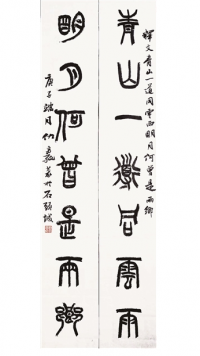 釋文青山一道同雲雨明月何曾是兩鄉
青山一道同雲雨
明月何曾是兩鄉
庚子 月 石頭城